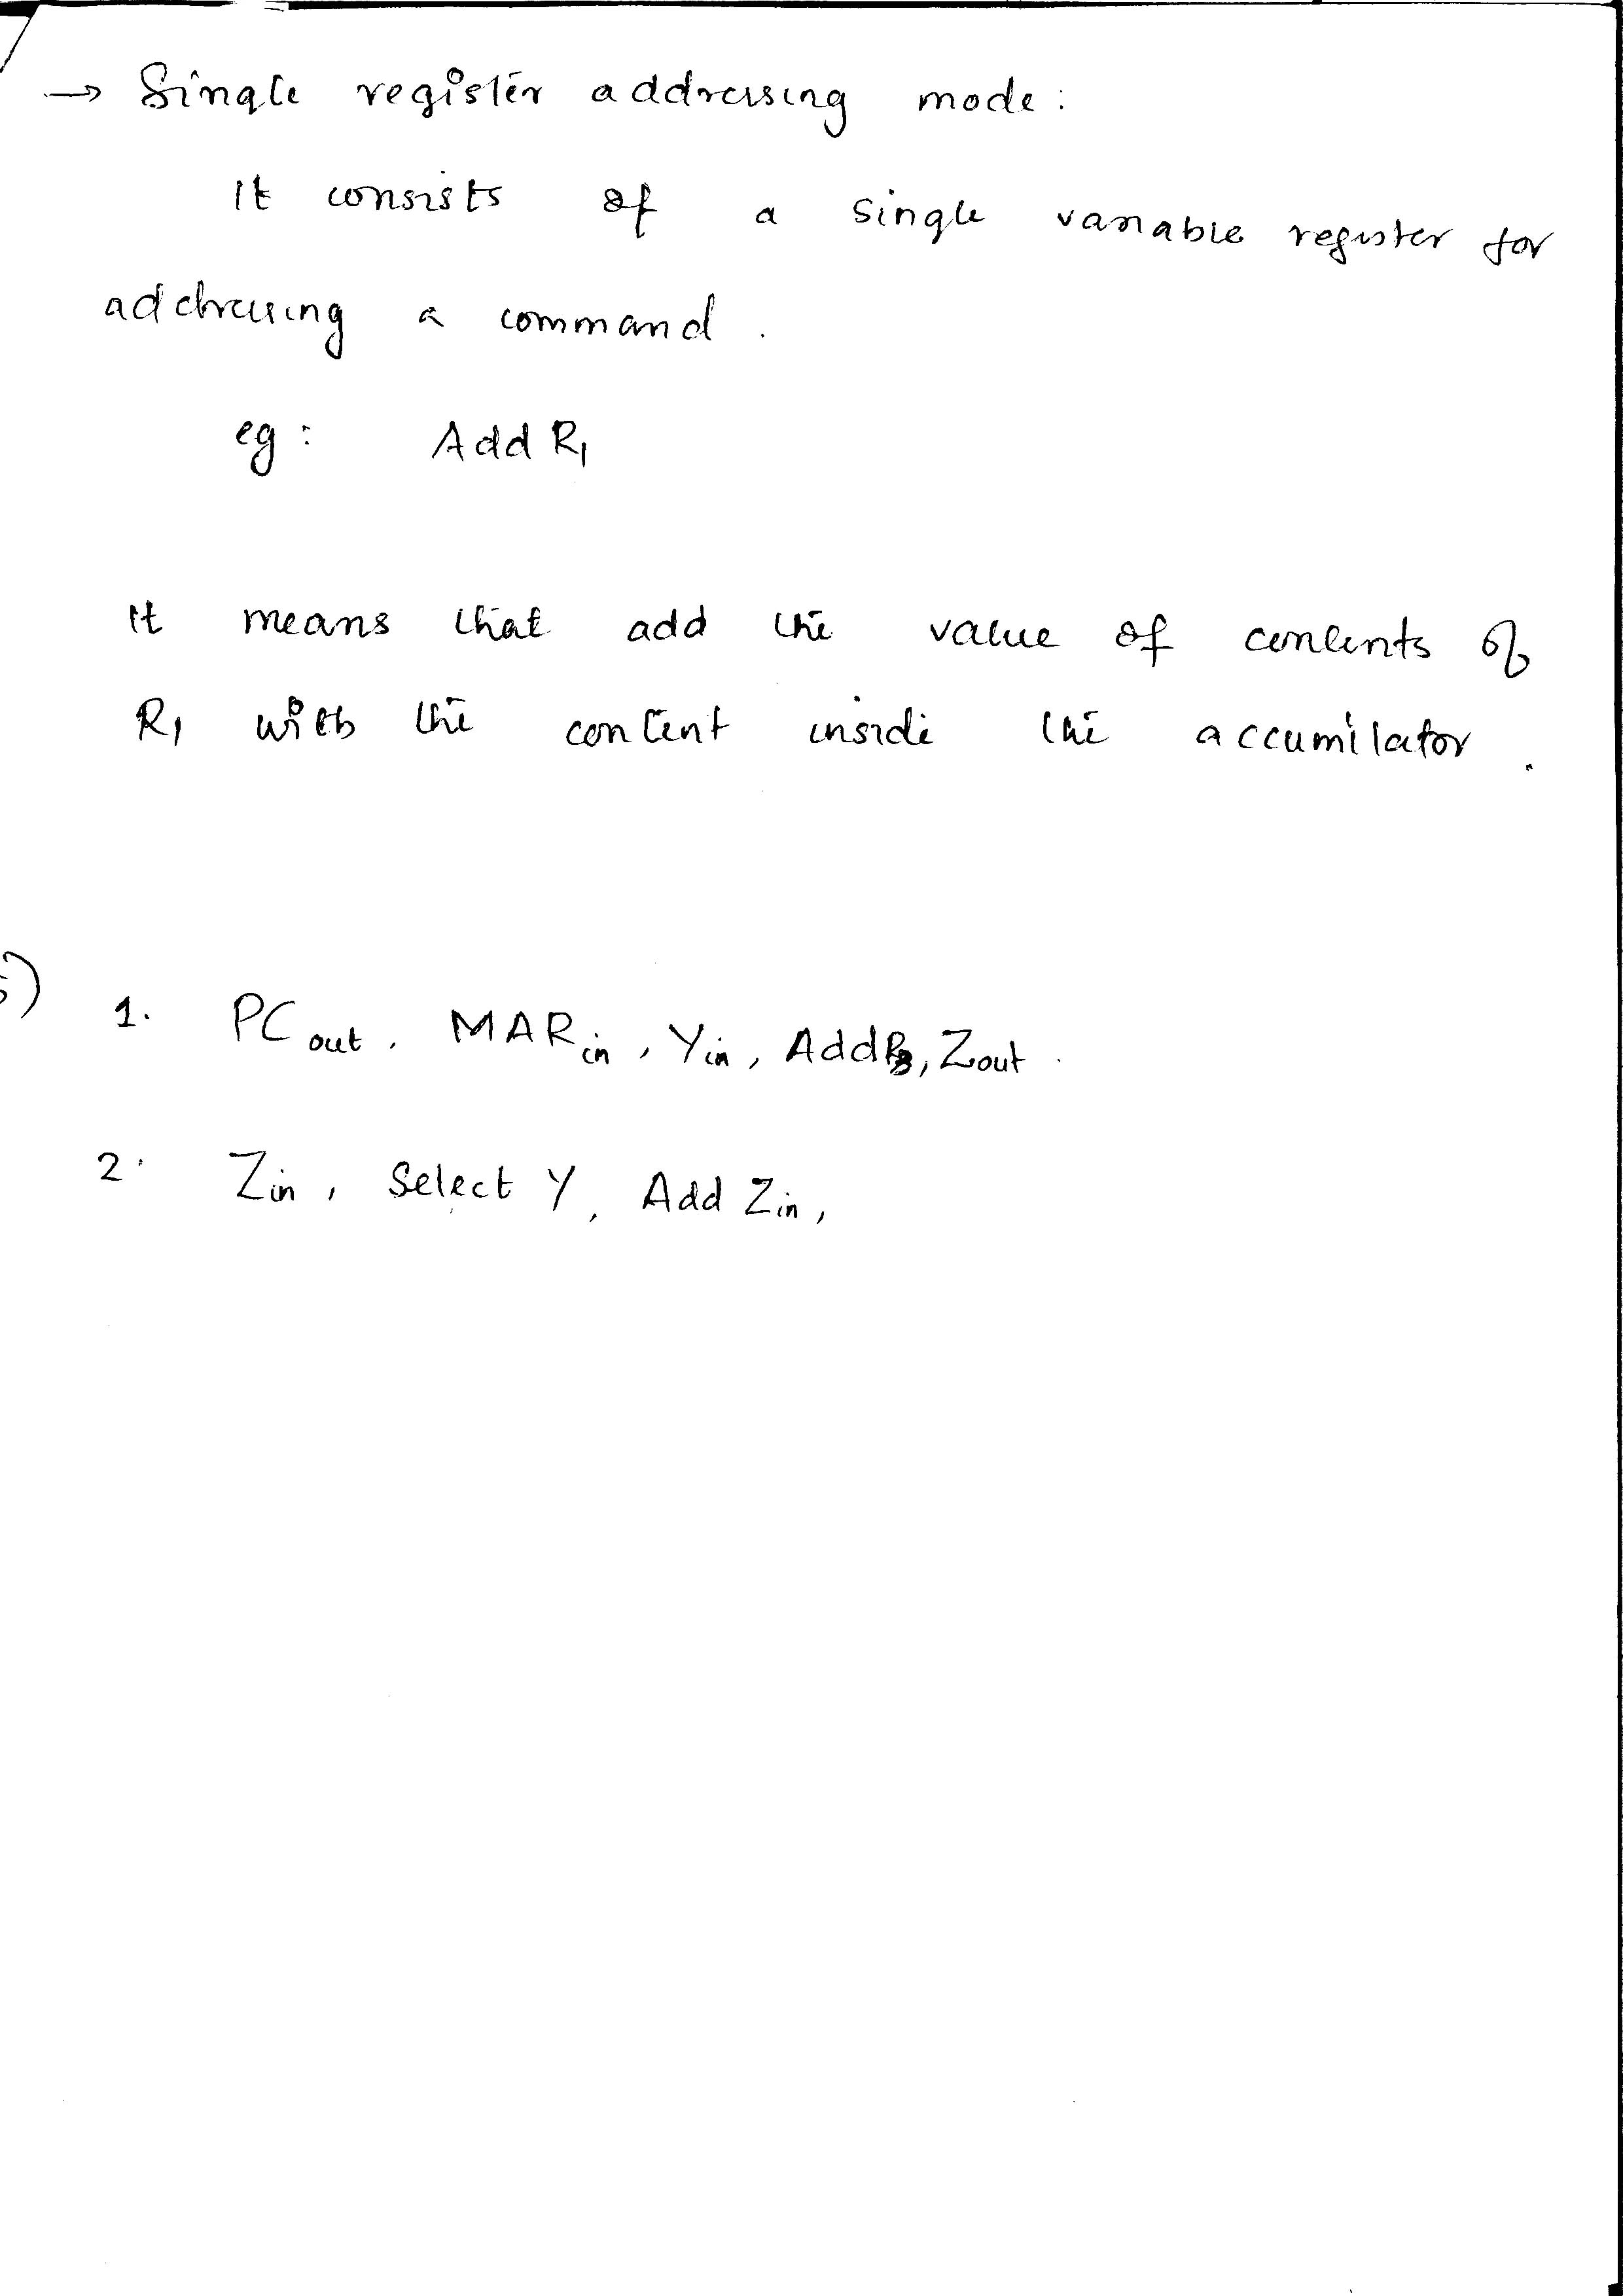 → Single register addressing mode:
It consists of a single variable register for
addressing a command.
eg: Add R1
It means that add the value of contents of
R1 with the content inside the accumilator.
5)
1. PC out, MAR in, Y in, Add R3, Z out.
2. Z in, Select Y, Add Z in,